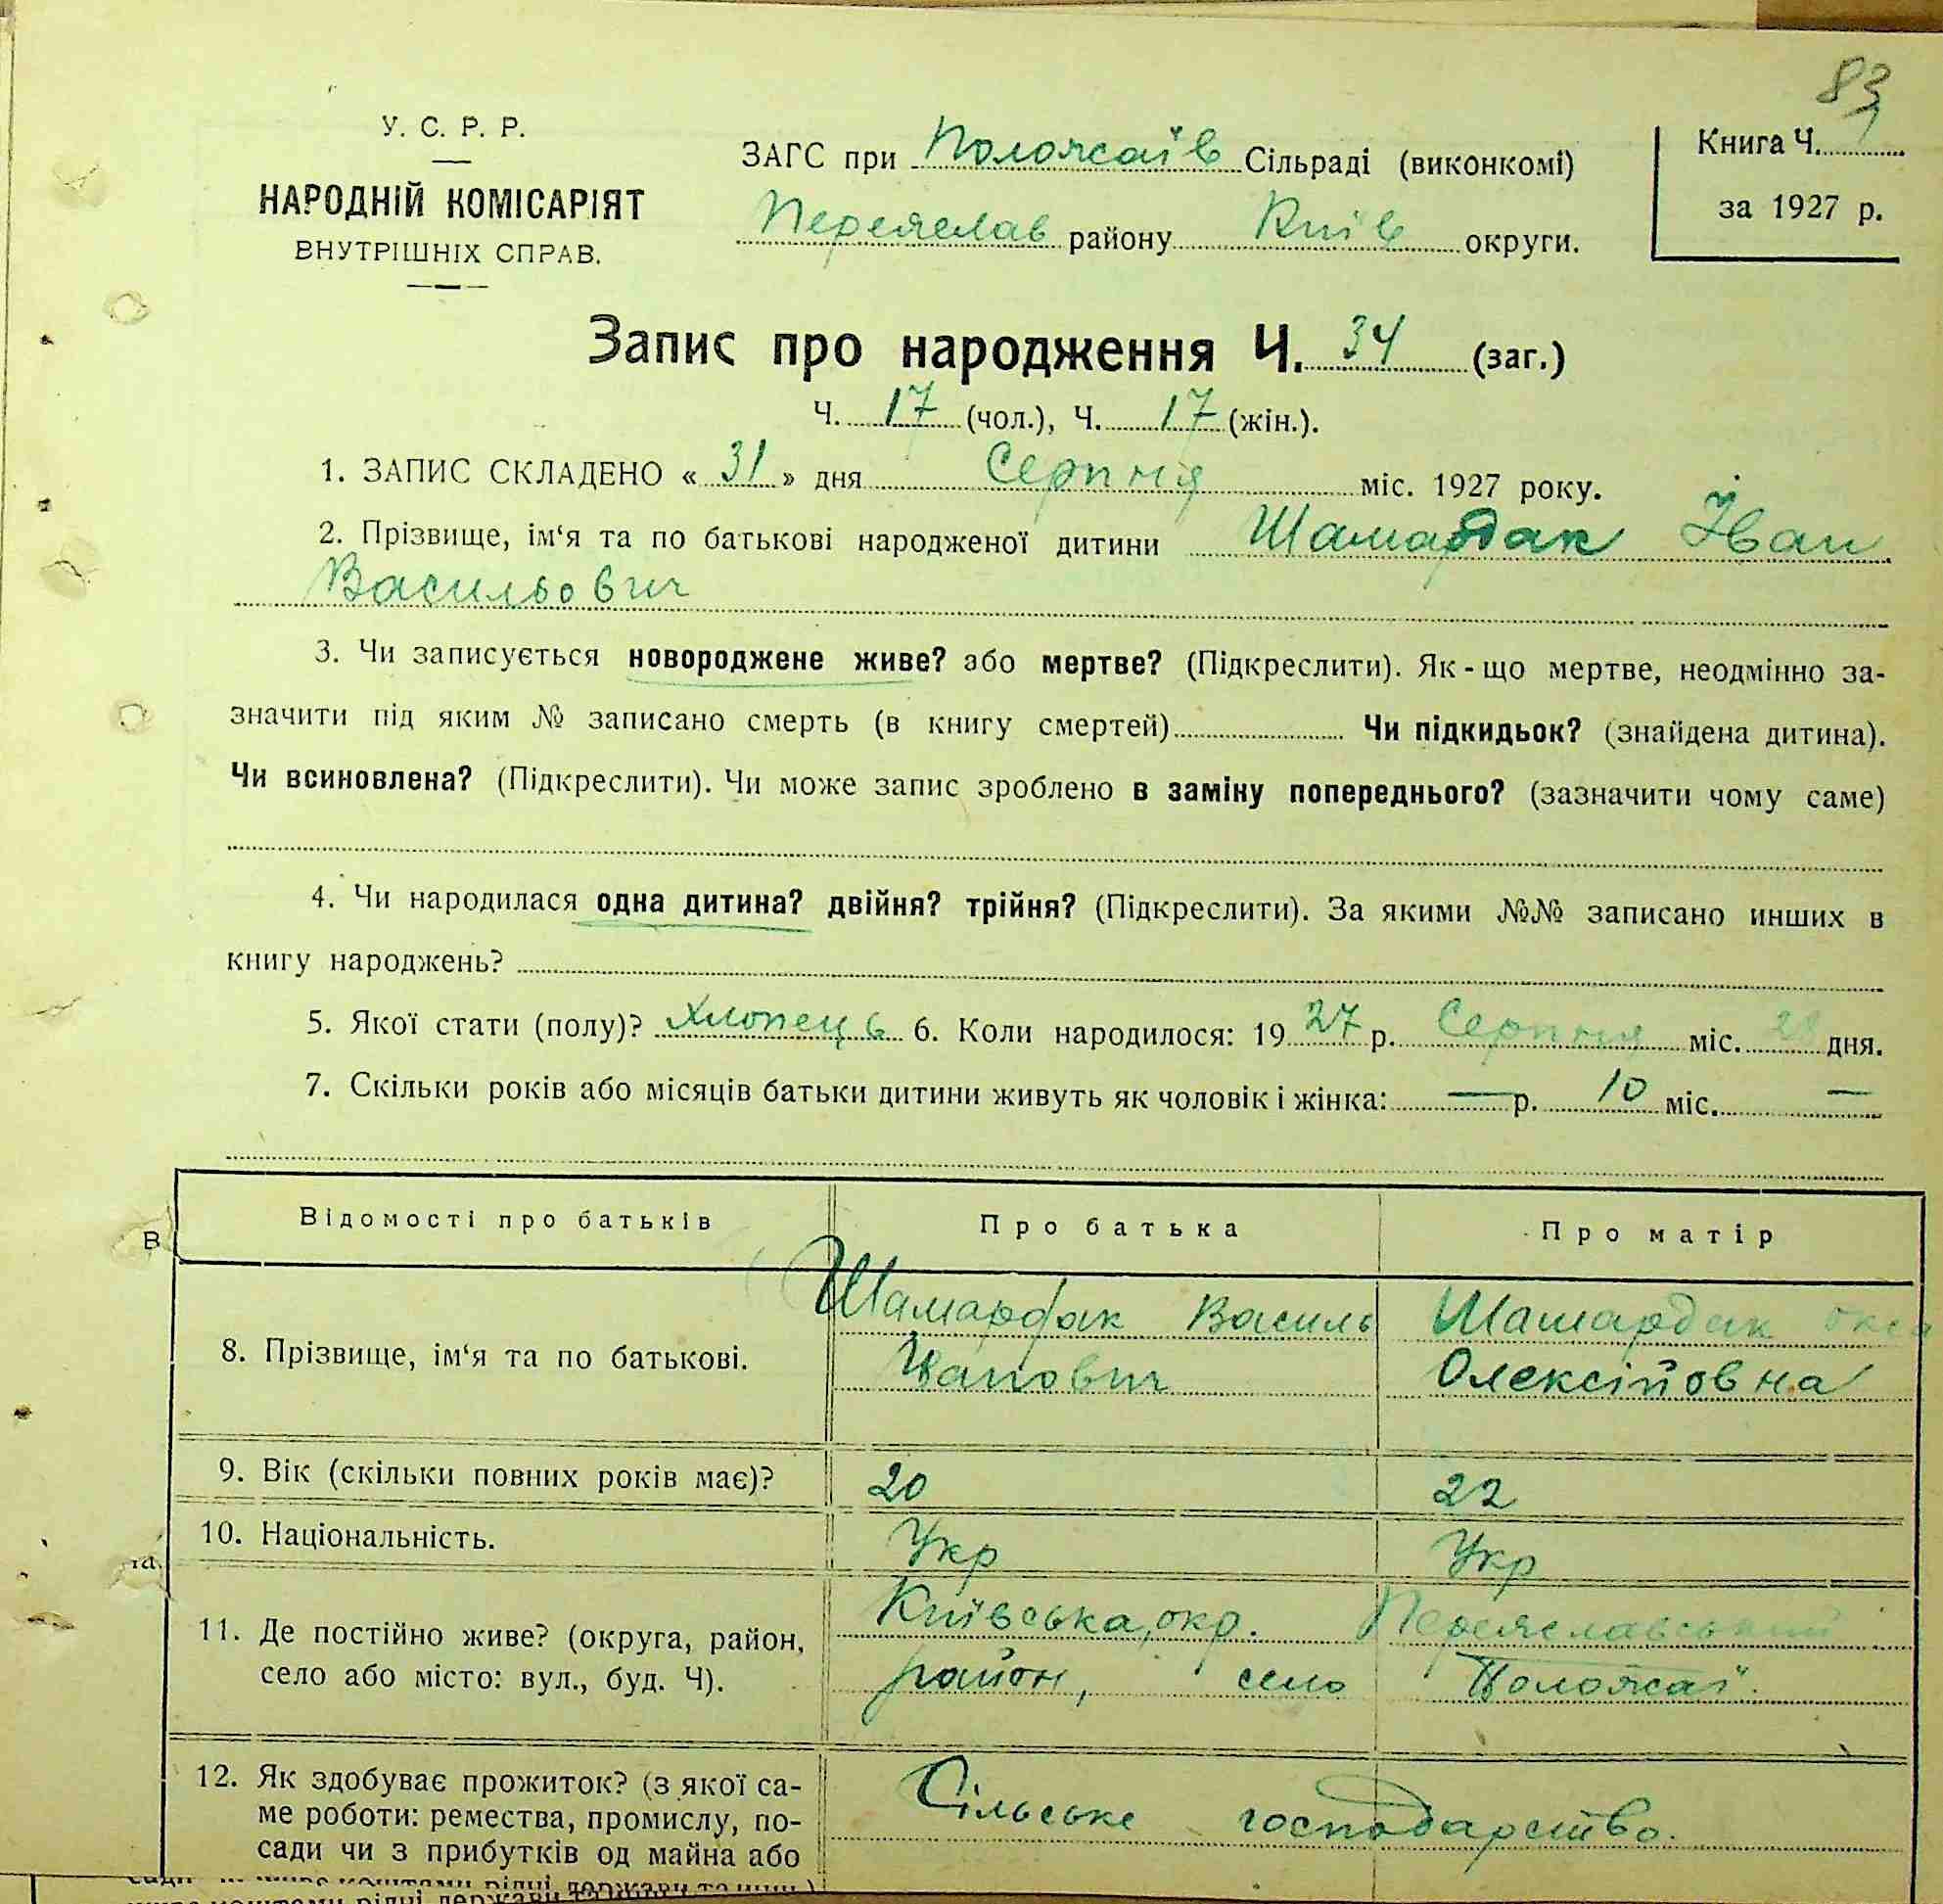 83
У. С. Р. Р.
НАРОДНІЙ КОМІСАРІЯТ
ВНУТРІШНІХ СПРАВ.
ЗАГС при Положаїв Сільраді (виконкомі)
Переяслав району Київ округи.
Книга Ч.
за 1927 р.
Запис про народження Ч. 34 (заг.)
Ч. 17 (чол.), Ч. 17 (жін.).
1. ЗАПИС СКЛАДЕНО « 31 » дня Серпня міс. 1927 року.
2. Прізвище, ім‘я та по батькові народженої дитини Шамардак Іван
Васильович
3. Чи записується новороджене живе? або мертве? (Підкреслити). Як-що мертве, неодмінно за-
значити під яким № записано смерть (в книгу смертей) Чи підкидьок? (знайдена дитина).
Чи всиновлена? (Підкреслити). Чи може запис зроблено в заміну попереднього? (зазначити чому саме)
4. Чи народилася одна дитина? двійня? трійня? (Підкреслити). За якими №№ записано инших в
книгу народжень?
5. Якої стати (полу)? Хлопець 6. Коли народилося: 19 27 р. Серпня міс. 28 дня.
7. Скільки років або місяців батьки дитини живуть як чоловік і жінка: — р. 10 міс. —
Відомості про батьків Про батька Про матір
8. Прізвище, ім‘я та по батькові.
Шамардак Василь Шамардак Окса
Іванович Олексіїовна
9. Вік (скільки повних років має)? 20 22
10. Національність. Укр Укр
11. Де постійно живе? (округа, район,
село або місто: вул., буд. Ч).
Київська, окр. Переяславський
район, село Положаї.
12. Як здобуває прожиток? (з якої са-
ме роботи: ремества, промислу, по-
сади чи з прибутків од майна або
Сільське господарство.
В
та